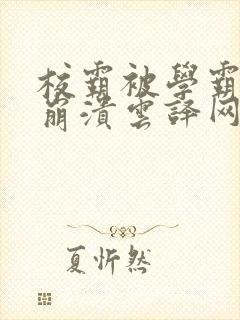 校霸被學霸
崩潰雲译网
夏忻然